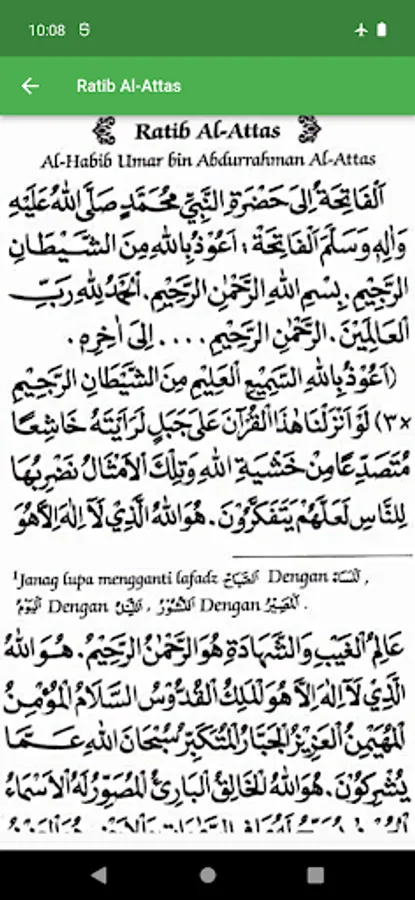 10:08
Ratib Al-Attas
Ratib Al-Attas
Al-Habib Umar bin Abdurrahman Al-Attas
اَلْفَاتِحَةُ إِلَى حَضْرَةِ النَّبِيِّ مُحَمَّدٍ صَلَّى اللهُ عَلَيْهِ
وَاٰلِهِ وَسَلَّمَ الْفَاتِحَةْ : اَعُوْذُ بِاللهِ مِنَ الشَّيْطَانِ
الرَّجِيْمِ. بِسْمِ اللهِ الرَّحْمٰنِ الرَّحِيْمِ. اَلْحَمْدُ لِلّٰهِ رَبِّ
الْعَالَمِيْنَ. الرَّحْمٰنِ الرَّحِيْمِ .... إِلَى اٰخِرِهِ.
(اَعُوْذُ بِاللهِ السَّمِيْعِ الْعَلِيْمِ مِنَ الشَّيْطَانِ الرَّجِيْمِ
×٣) لَوْ اَنْزَلْنَا هٰذَا الْقُرْآنَ عَلَى جَبَلٍ لَرَاَيْتَهُ خَاشِعًا
مُتَصَدِّعًا مِنْ خَشْيَةِ اللهِ وَتِلْكَ الْاَمْثَالُ نَضْرِبُهَا
لِلنَّاسِ لَعَلَّهُمْ يَتَفَكَّرُوْنَ. هُوَ اللهُ الَّذِيْ لَآ اِلٰهَ اِلَّا هُوَ
¹Janag lupa mengganti lafadz الصَّبَاحُ Dengan الْمَسَاءُ ,
الْيَوْمُ Dengan , النُّشُوْرُ Dengan الْمَصِيْرُ .
عَالِمُ الْغَيْبِ وَالشَّهَادَةِ هُوَ الرَّحْمٰنُ الرَّحِيْمُ. هُوَ اللهُ
الَّذِيْ لَآ اِلٰهَ اِلَّا هُوَ الْمَلِكُ الْقُدُّوْسُ السَّلَامُ الْمُؤْمِنُ
الْمُهَيْمِنُ الْعَزِيْزُ الْجَبَّارُ الْمُتَكَبِّرُ سُبْحَانَ اللهِ عَمَّا
يُشْرِكُوْنَ. هُوَ اللهُ الْخَالِقُ الْبَارِئُ الْمُصَوِّرُ لَهُ الْاَسْمَاءُ